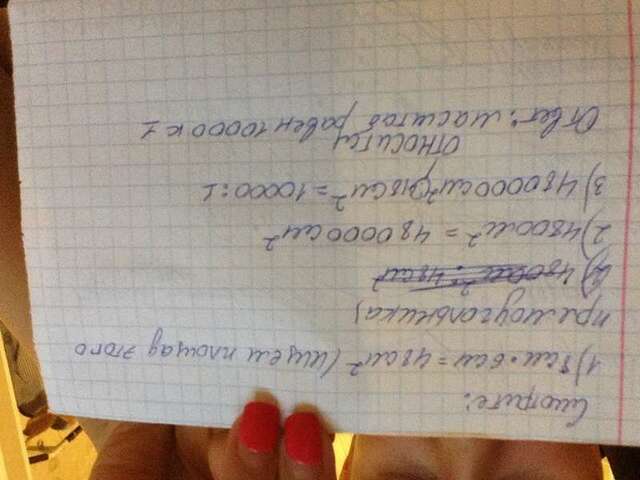 Смотрите:
1) 8см • 6см = 48см² (ищем площад этого
прямоугольника)
2) 4800м² : 48см²
2) 4800м² = 480000см²
3) 480000см² : 48см² = 10000:1
относится
Ответ: масштаб равен 10000 к 1